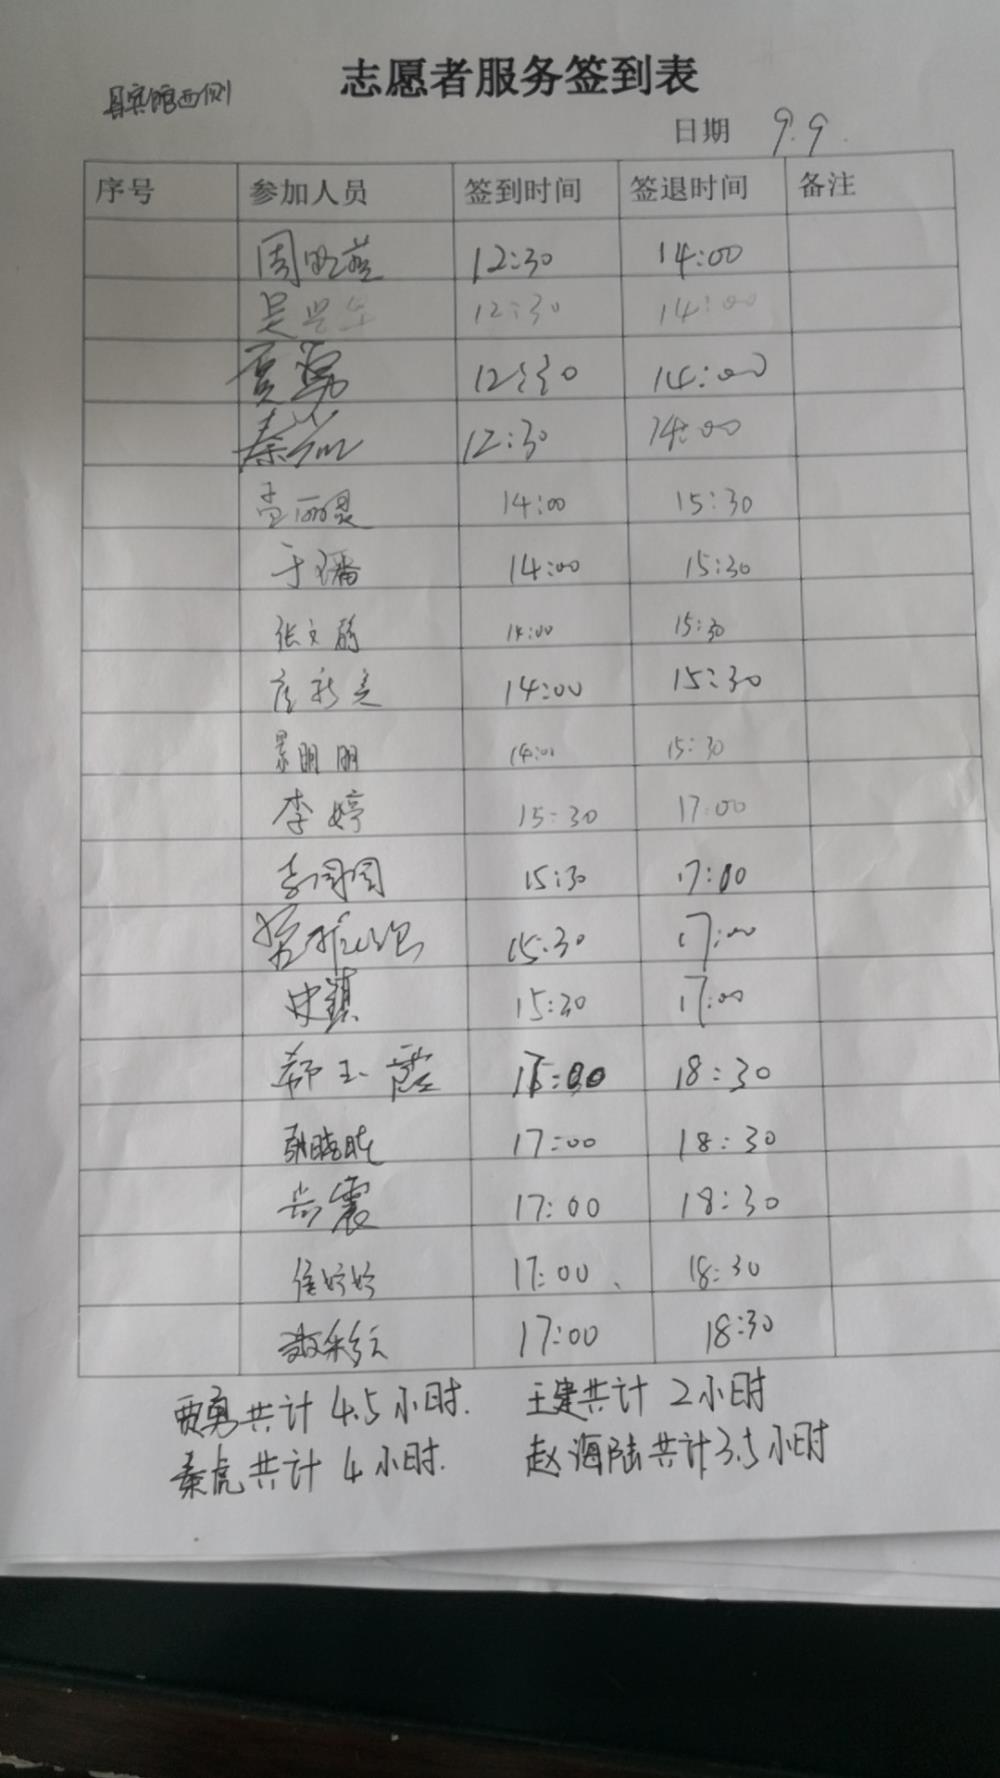 县宾馆西侧
志愿者服务签到表
日期 9.9
序号 参加人员 签到时间 签退时间 备注
12:30 14:00
12:30 14:00
贾勇 12:30 14:00
秦 12:30 14:00
14:00 15:30
于璠 14:00 15:30
张文 14:00 15:30
14:00 15:30
景明明 14:00 15:30
李婷 15:30 17:00
李围围 15:30 17:00
15:30 17:00
史镇 15:30 17:00
郝玉霞 17:00 18:30
张晓 17:00 18:30
尚震 17:00 18:30
侯婷婷 17:00 18:30
17:00 18:30
贾勇共计4.5小时. 王建共计2小时
秦虎共计4小时. 赵海陆共计3.5小时